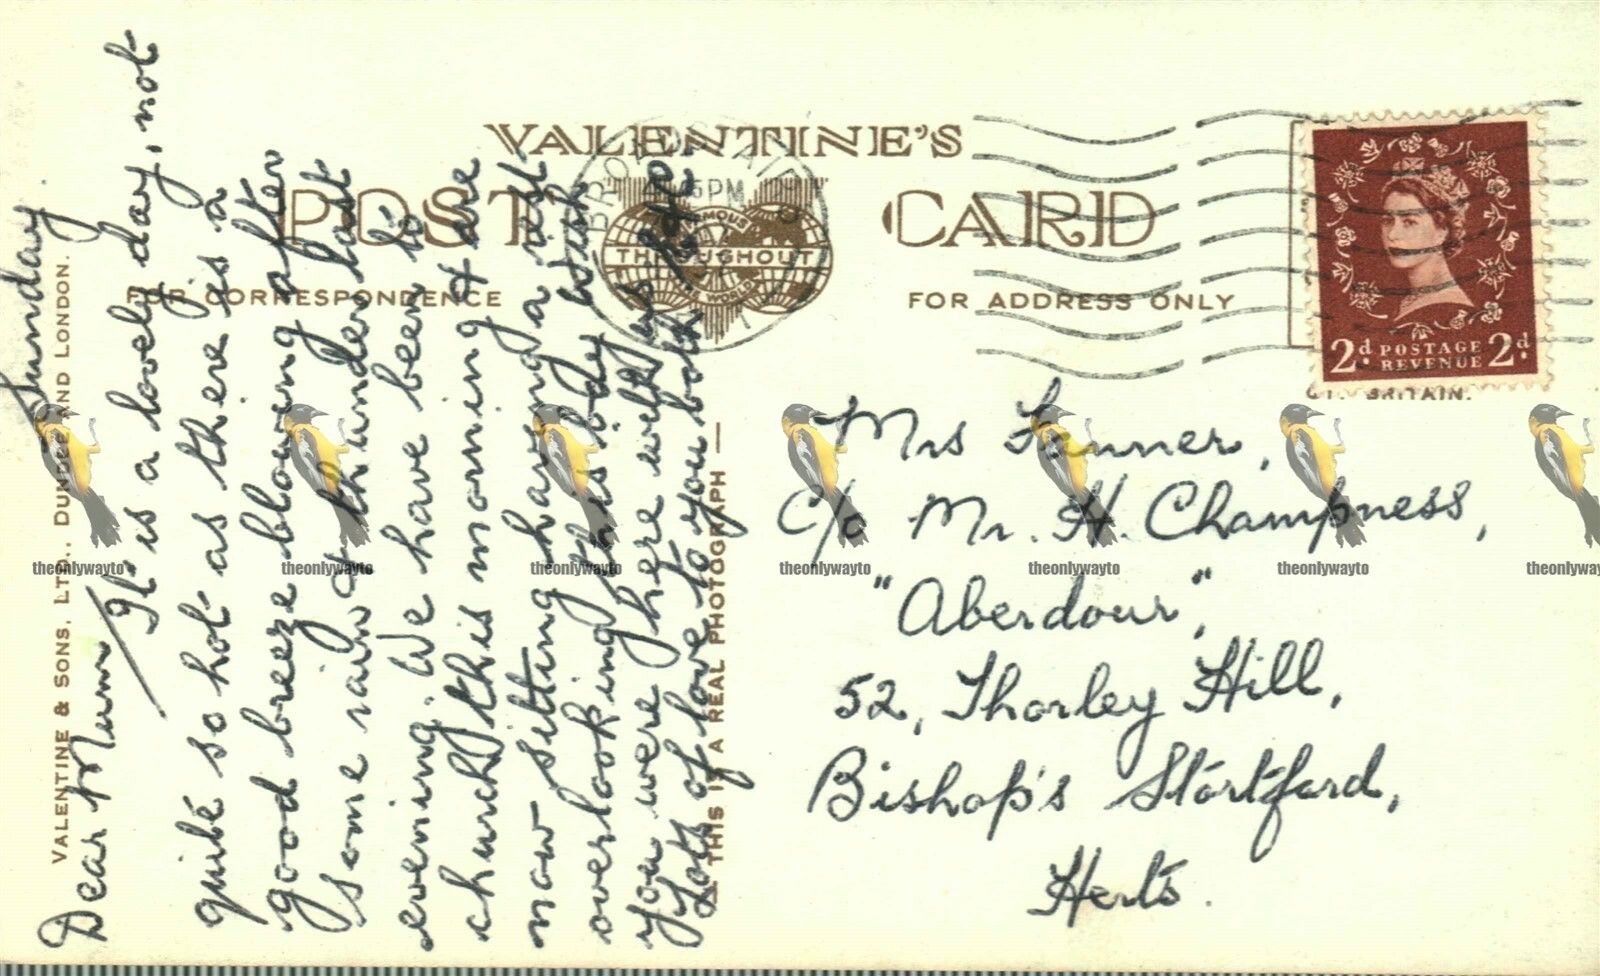 VALENTINE'S
POST CARD
FAMOUS
THROUGHOUT
THE WORLD
FOR CORRESPONDENCE
FOR ADDRESS ONLY
VALENTINE & SONS, LTD., DUNDEE AND LONDON.
THIS IS A REAL PHOTOGRAPH
PM
2d POSTAGE 2d
REVENUE
BRITAIN.
Sunday
Dear Mum
It is a lovely day, not
quite so hot as there is a
good breeze blowing after
some rain & thunder last
evening. We have been to
church this morning & are
now sitting having a rest
overlooking this bay. Wish
you were here with us both.
Lots of love to you both.
Mrs Fenner,
c/o Mr. H. Champness,
"Aberdour",
52, Thorley Hill,
Bishop's Stortford,
Herts.
theonlywayto theonlywayto theonlywayto theonlywayto theonlywayto theonlywayto theonlyway